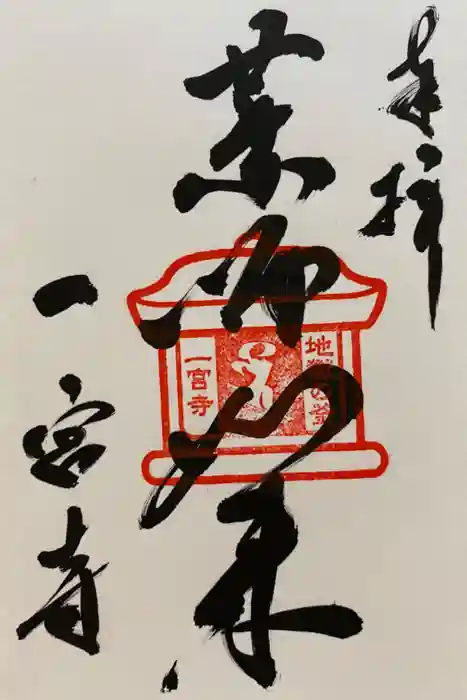 奉拝
薬師如来
地獄の釜
一宮寺
一宮寺